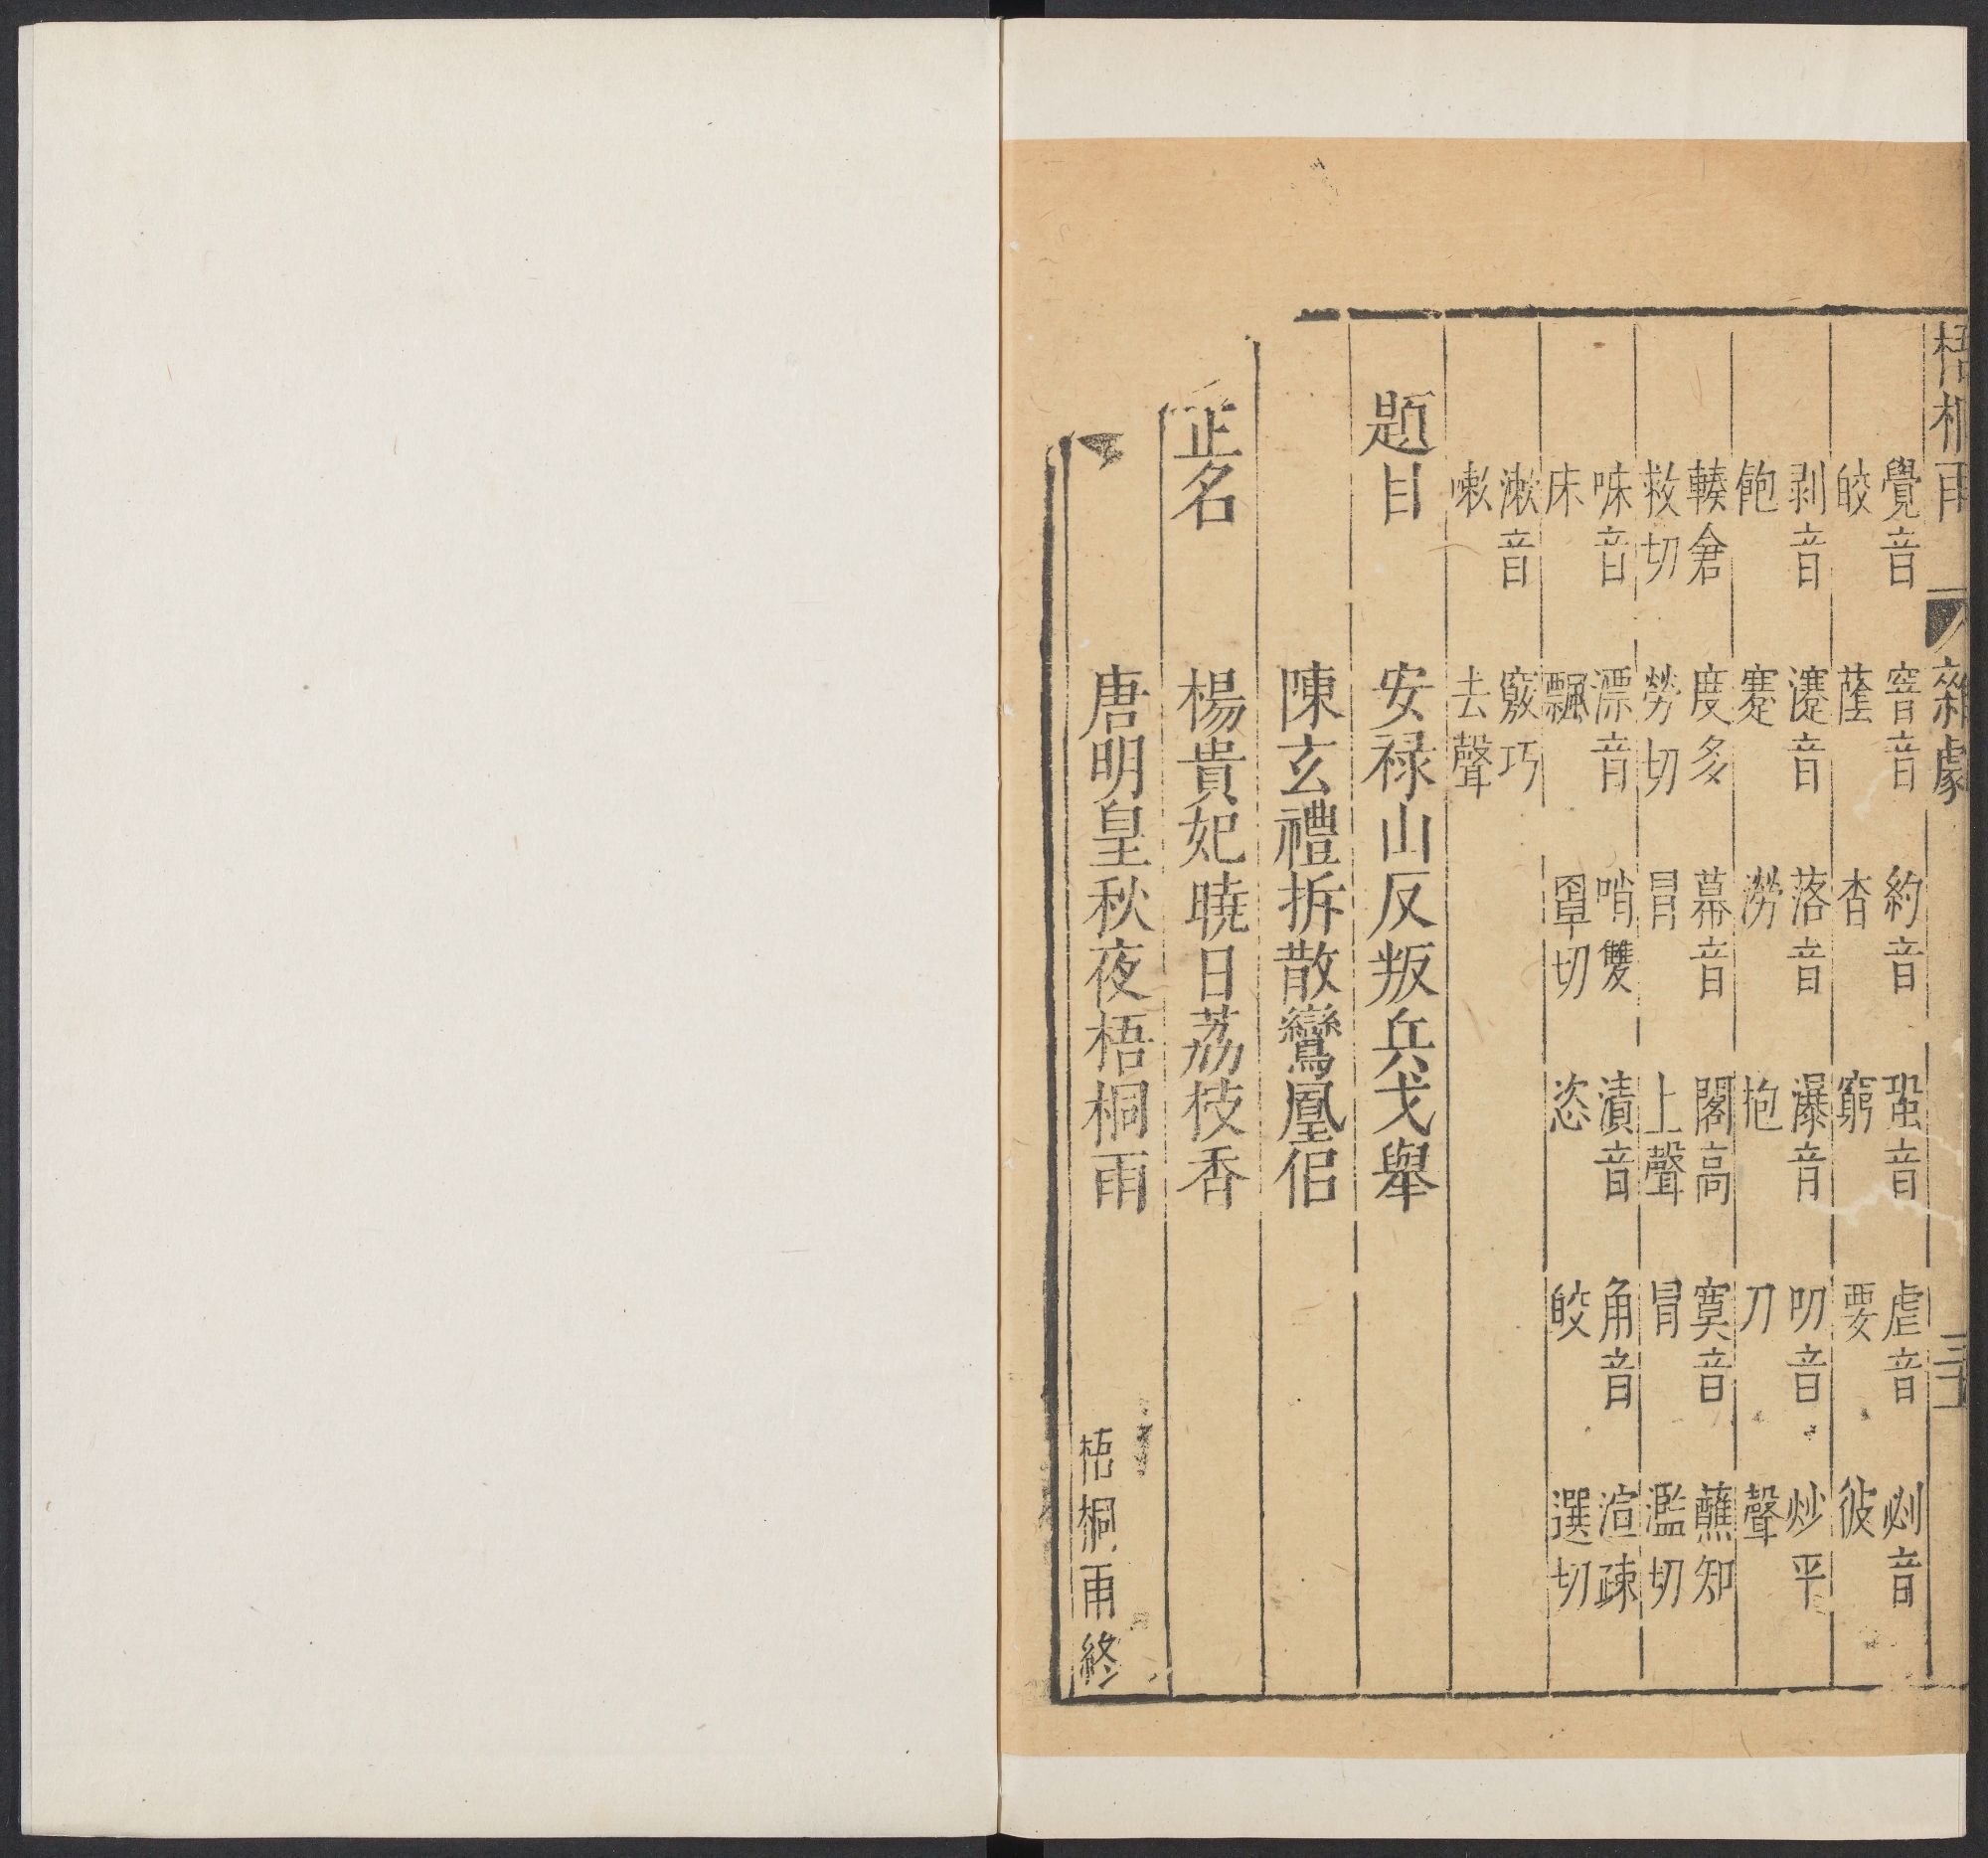 梧桐雨 雜劇
覺音皎 窨音蔭 約音杳 蛩音窮 虐音要 㓖音彼
剥音飽 瀽音蹇 落音澇 瀑音抱 叨音刀 炒平聲
輳倉救切 度多勞切 幕音冒 閣高上聲 寞音冒 蘸知濫切
音床 漂音飄 哨雙罩切 漬音恣 角音皎 渲疎選切
潄音嗽 竅巧去聲
題目 安禄山反叛兵戈舉
陳玄禮拆散鸞凰侶
正名 楊貴妃曉日荔枝香
唐明皇秋夜梧桐雨
梧桐雨終